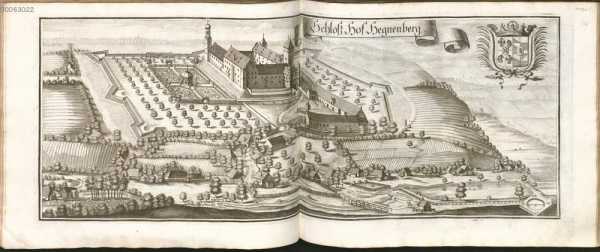 00063022
Schloß Hof Hegnenberg.